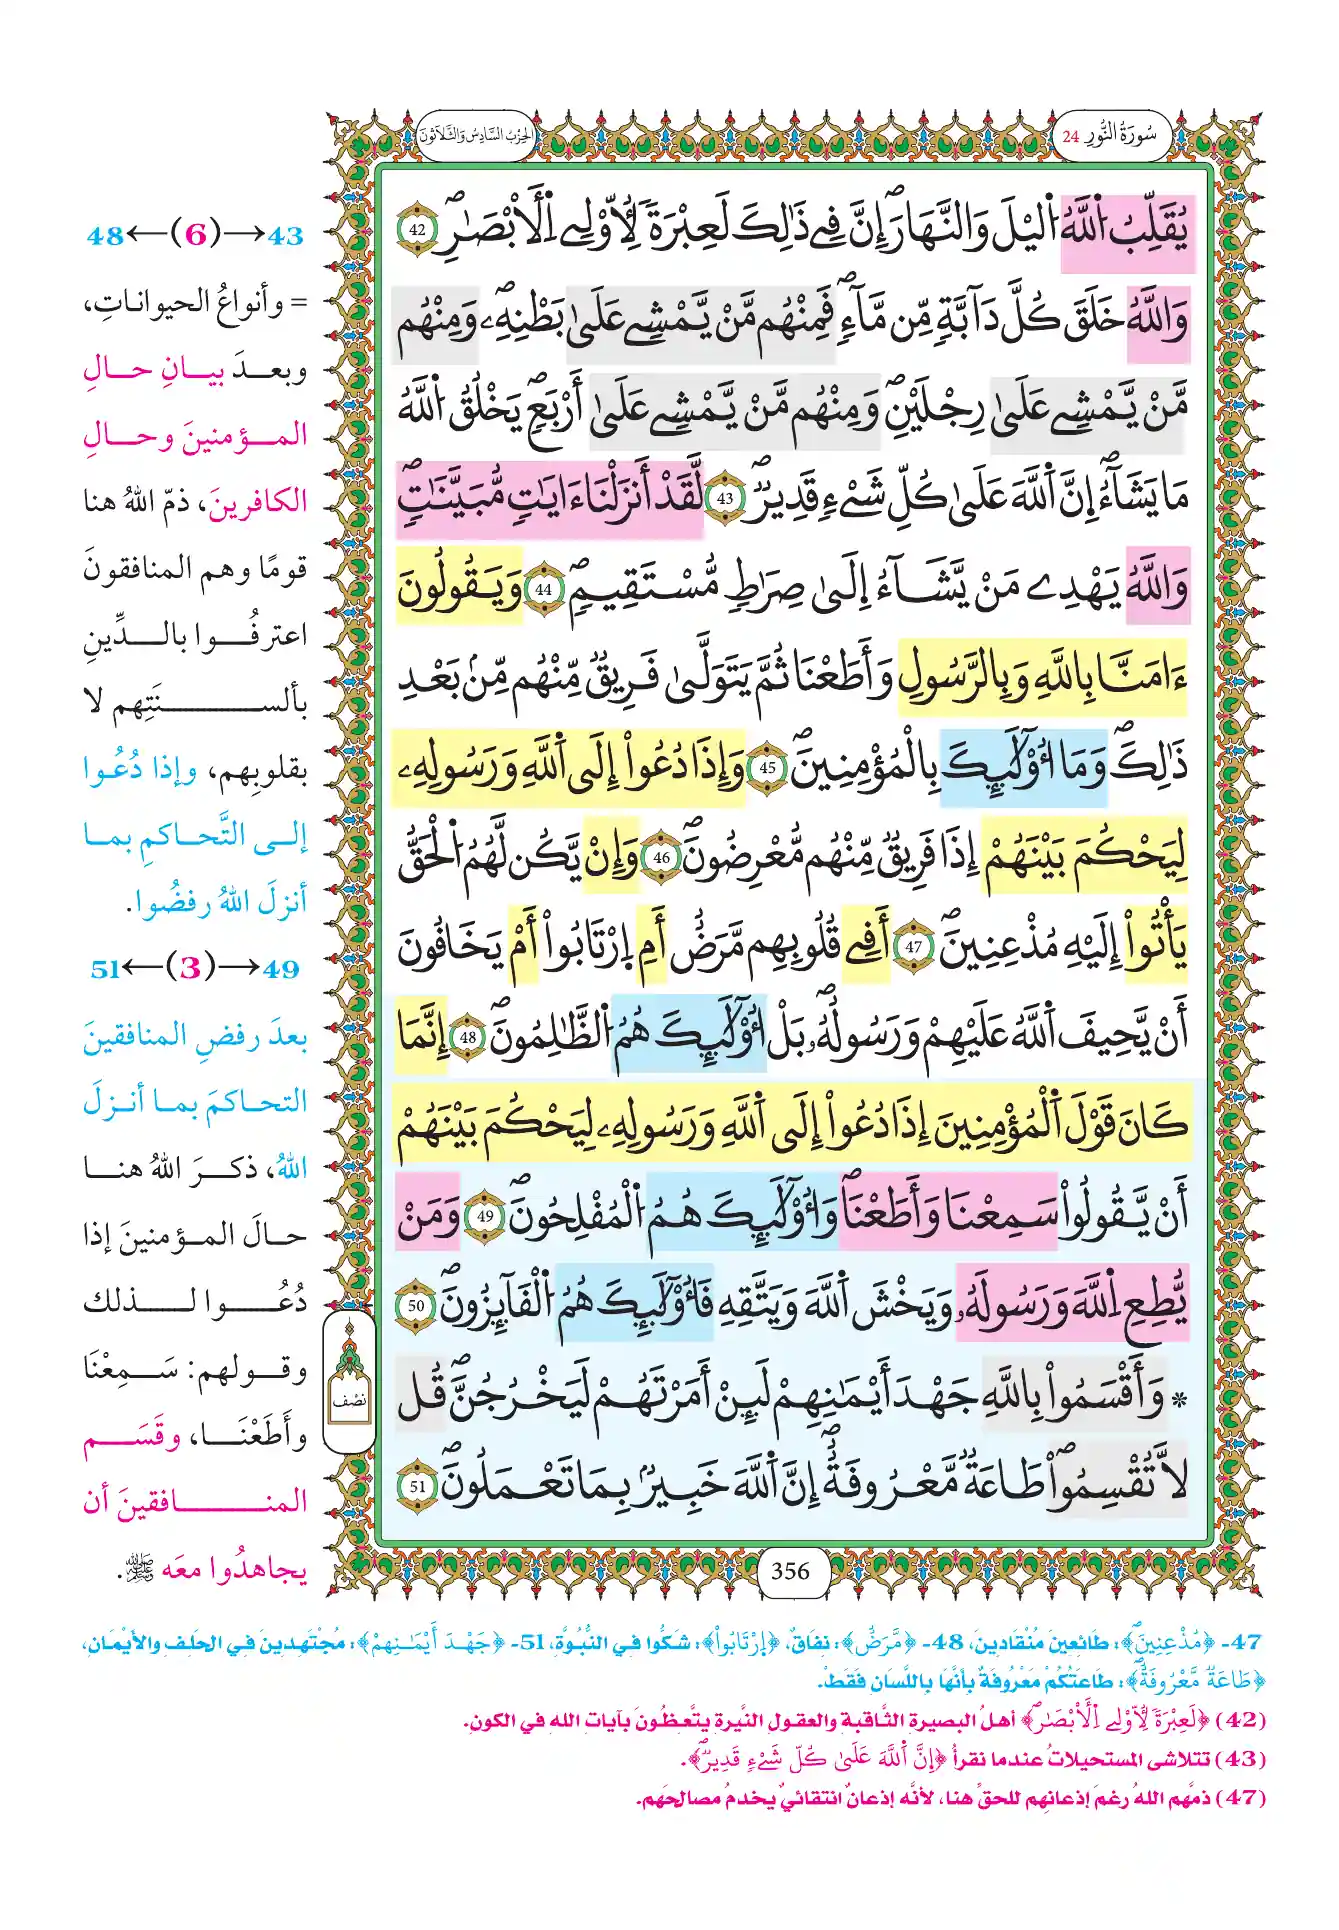 سُورَةُ النُّورِ 24
الحِزْبُ السَّادِسُ وَالثَّلَاثُونَ
يُقَلِّبُ اُللَّهُ اُليْلَ وَالنَّهَارَۖ إِنَّ فِے ذَٰلِكَ لَعِبْرَةٗ لِّأُوْلِے اِلَابْصٰ۪رِۖ 42
وَاللَّهُ خَلَقَ كُلَّ دَآبَّةٖ مِّن مَّآءٖۖ فَمِنْهُم مَّنْ يَّمْشِے عَلَىٰ بَطْنِهِۦۖ وَمِنْهُم
مَّنْ يَّمْشِے عَلَىٰ رِجْلَيْنِۖ وَمِنْهُم مَّنْ يَّمْشِے عَلَىٰٓ أَرْبَعٖۖ يَخْلُقُ اُللَّهُ
مَا يَشَآءُۖ اِنَّ اَللَّهَ عَلَىٰ كُلِّ شَےْءٖ قَدِيرٞۖ 43 لَّقَدْ أَنزَلْنَآ ءَايَٰتٖ مُّبَيَّنَٰتٖۖ
وَاللَّهُ يَهْدِے مَنْ يَّشَآءُ اِلَىٰ صِرَٰطٖ مُّسْتَقِيمٖۖ 44 وَيَقُولُونَ
ءَامَنَّا بِاللَّهِ وَبِالرَّسُولِ وَأَطَعْنَا ثُمَّ يَتَوَلَّىٰ فَرِيقٞ مِّنْهُم مِّنۢ بَعْدِ
ذَٰلِكَۖ وَمَآ أُوْلَٰٓئِكَ بِالْمُؤْمِنِينَۖ 45 وَإِذَا دُعُوٓاْ إِلَى اَللَّهِ وَرَسُولِهِۦ
لِيَحْكُمَ بَيْنَهُمُۥٓ إِذَا فَرِيقٞ مِّنْهُم مُّعْرِضُونَۖ 46 وَإِنْ يَّكُن لَّهُمُ اُلْحَقُّ
يَأْتُوٓاْ إِلَيْهِ مُذْعِنِينَۖ 47 أَفِے قُلُوبِهِم مَّرَضٌ أَمِ اِرْتَابُوٓاْ أَمْ يَخَافُونَ
أَنْ يَّحِيفَ اَللَّهُ عَلَيْهِمْ وَرَسُولُهُۥۖ بَلُ اوْلَٰٓئِكَ هُمُ اُلظَّٰلِمُونَۖ 48 إِنَّمَا
كَانَ قَوْلَ اَلْمُؤْمِنِينَ إِذَا دُعُوٓاْ إِلَى اَللَّهِ وَرَسُولِهِۦ لِيَحْكُمَ بَيْنَهُمُۥٓ
أَنْ يَّقُولُواْ سَمِعْنَا وَأَطَعْنَاۖ وَأُوْلَٰٓئِكَ هُمُ اُلْمُفْلِحُونَۖ 49 وَمَنْ
يُّطِعِ اِللَّهَ وَرَسُولَهُۥ وَيَخْشَ اَللَّهَ وَيَتَّقِهِۦ فَأُوْلَٰٓئِكَ هُمُ اُلْفَآئِزُونَۖ 50
* وَأَقْسَمُواْ بِاللَّهِ جَهْدَ أَيْمَٰنِهِمْ لَئِنَ اَمَرْتَهُمْ لَيَخْرُجُنَّۖ قُل
لَّا تُقْسِمُواْۖ طَاعَةٞ مَّعْرُوفَةٌۖ اِنَّ اَللَّهَ خَبِيرُۢ بِمَا تَعْمَلُونَۖ 51
نصْف
356
43→(6)←48
= وأنواعُ الحيواناتِ،
وبعدَ بيانِ حالِ
المؤمنينَ وحالِ
الكافرينَ، ذمّ اللهُ هنا
قومًا وهم المنافقونَ
اعترفُوا بالدِّينِ
بألسنَتِهم لا
بقلوبِهم، وإذا دُعُوا
إلى التَّحاكمِ بما
أنزلَ اللهُ رفضُوا.
49→(3)←51
بعدَ رفضِ المنافقينَ
التحاكمَ بما أنزلَ
اللهُ، ذكرَ اللهُ هنا
حالَ المؤمنينَ إذا
دُعُوا لذلك
وقولهم: سَمِعْنَا
وأَطَعْنَا، وقَسَم
المنافقينَ أن
يجاهدُوا معَه ﷺ.
47- ﴿مُذْعِنِينَۖ﴾: طَائِعِينَ مُنْقَادِينَ، 48- ﴿مَّرَضٌ﴾: نِفَاقٌ، ﴿اِرْتَابُوٓاْ﴾: شَكُّوا فِي النُّبُوَّةِ، 51- ﴿جَهْدَ أَيْمَٰنِهِمْ﴾: مُجْتَهِدِينَ فِي الحَلِفِ وَالأَيْمَانِ،
﴿طَاعَةٞ مَّعْرُوفَةٌۖ﴾: طَاعَتُكُمْ مَعْرُوفَةٌ بِأَنَّهَا بِاللِّسَانِ فَقَطْ.
(42) ﴿لَعِبْرَةٗ لِّأُوْلِے اِلَابْصٰ۪رِۖ﴾ أهلُ البصيرةِ الثَّاقبةِ والعقولِ النَّيرةِ يتَّعِظُونَ بآياتِ اللهِ في الكونِ.
(43) تتلاشى المستحيلاتُ عندما نقرأُ ﴿إِنَّ اَللَّهَ عَلَىٰ كُلِّ شَےْءٖ قَدِيرٞۖ﴾.
(47) ذمَّهم اللهُ رغمَ إذعانِهم للحقِّ هنا، لأنَّه إذعانٌ انتقائيٌ يخدمُ مصالحَهم.